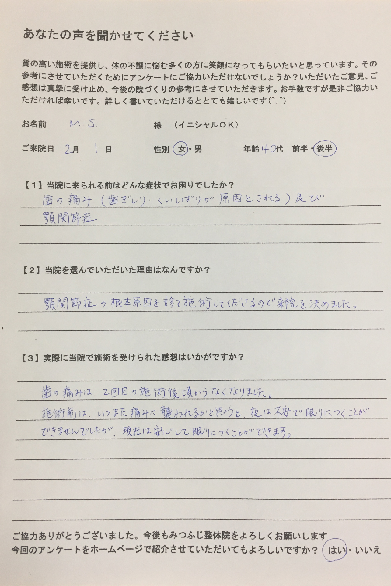 あなたの声を聞かせてください
質の高い施術を提供し、体の不調に悩む多くの方に笑顔になってもらいたいと思っています。その
参考にさせていただくためにアンケートにご協力いただけないでしょうか？いただいたご意見、ご
感想は真摯に受け止め、今後の院づくりの参考にさせていただきます。お手数ですが是非ご協力い
ただければ幸いです。詳しく書いていただけるととても嬉しいです(^_^)
お名前 M.S. 様 （イニシャルOK）
ご来院日 2月 日 性別 女・男 年齢40代 前半・後半
【1】当院に来られる前はどんな症状でお困りでしたか？
歯の痛み（歯ぎしり・くいしばりが原因とされる）及び
顎関節症。
【2】当院を選んでいただいた理由はなんですか？
顎関節症の根本原因を診て施術して下さるので来院を決めました。
【3】実際に当院で施術を受けられた感想はいかがですか？
歯の痛みは、2回目の施術後
施術前は、いつまた痛みに襲われるかと思うと、夜は不安で眠りにつくことが
できませんでしたが、現在は安心して眠りにつくことができます。
ご協力ありがとうございました。今後もみつふじ整体院をよろしくお願いします
今回のアンケートをホームページで紹介させていただいてもよろしいですか？ はい・いいえ